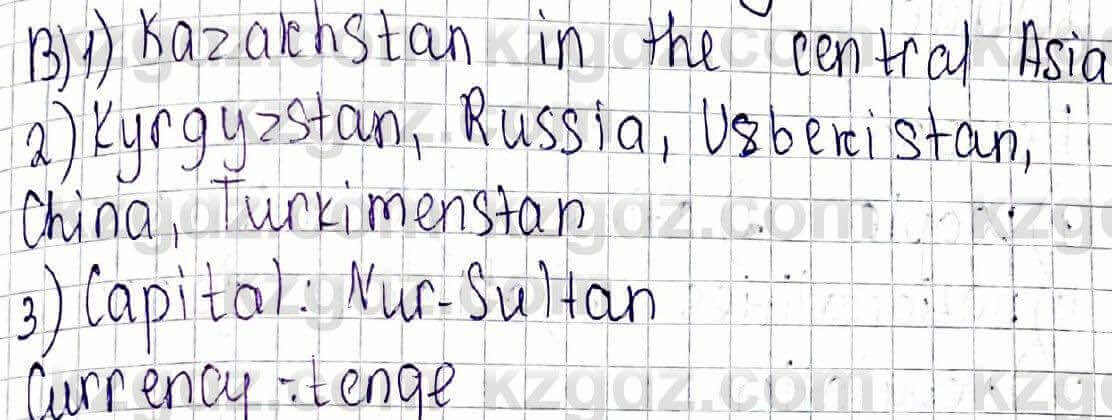 B) 1) Kazakhstan in the central Asia
2) Kyrgyzstan, Russia, Uzbekistan,
China, Turkimenstan
3) Capital: Nur-Sultan
Currency - tenge